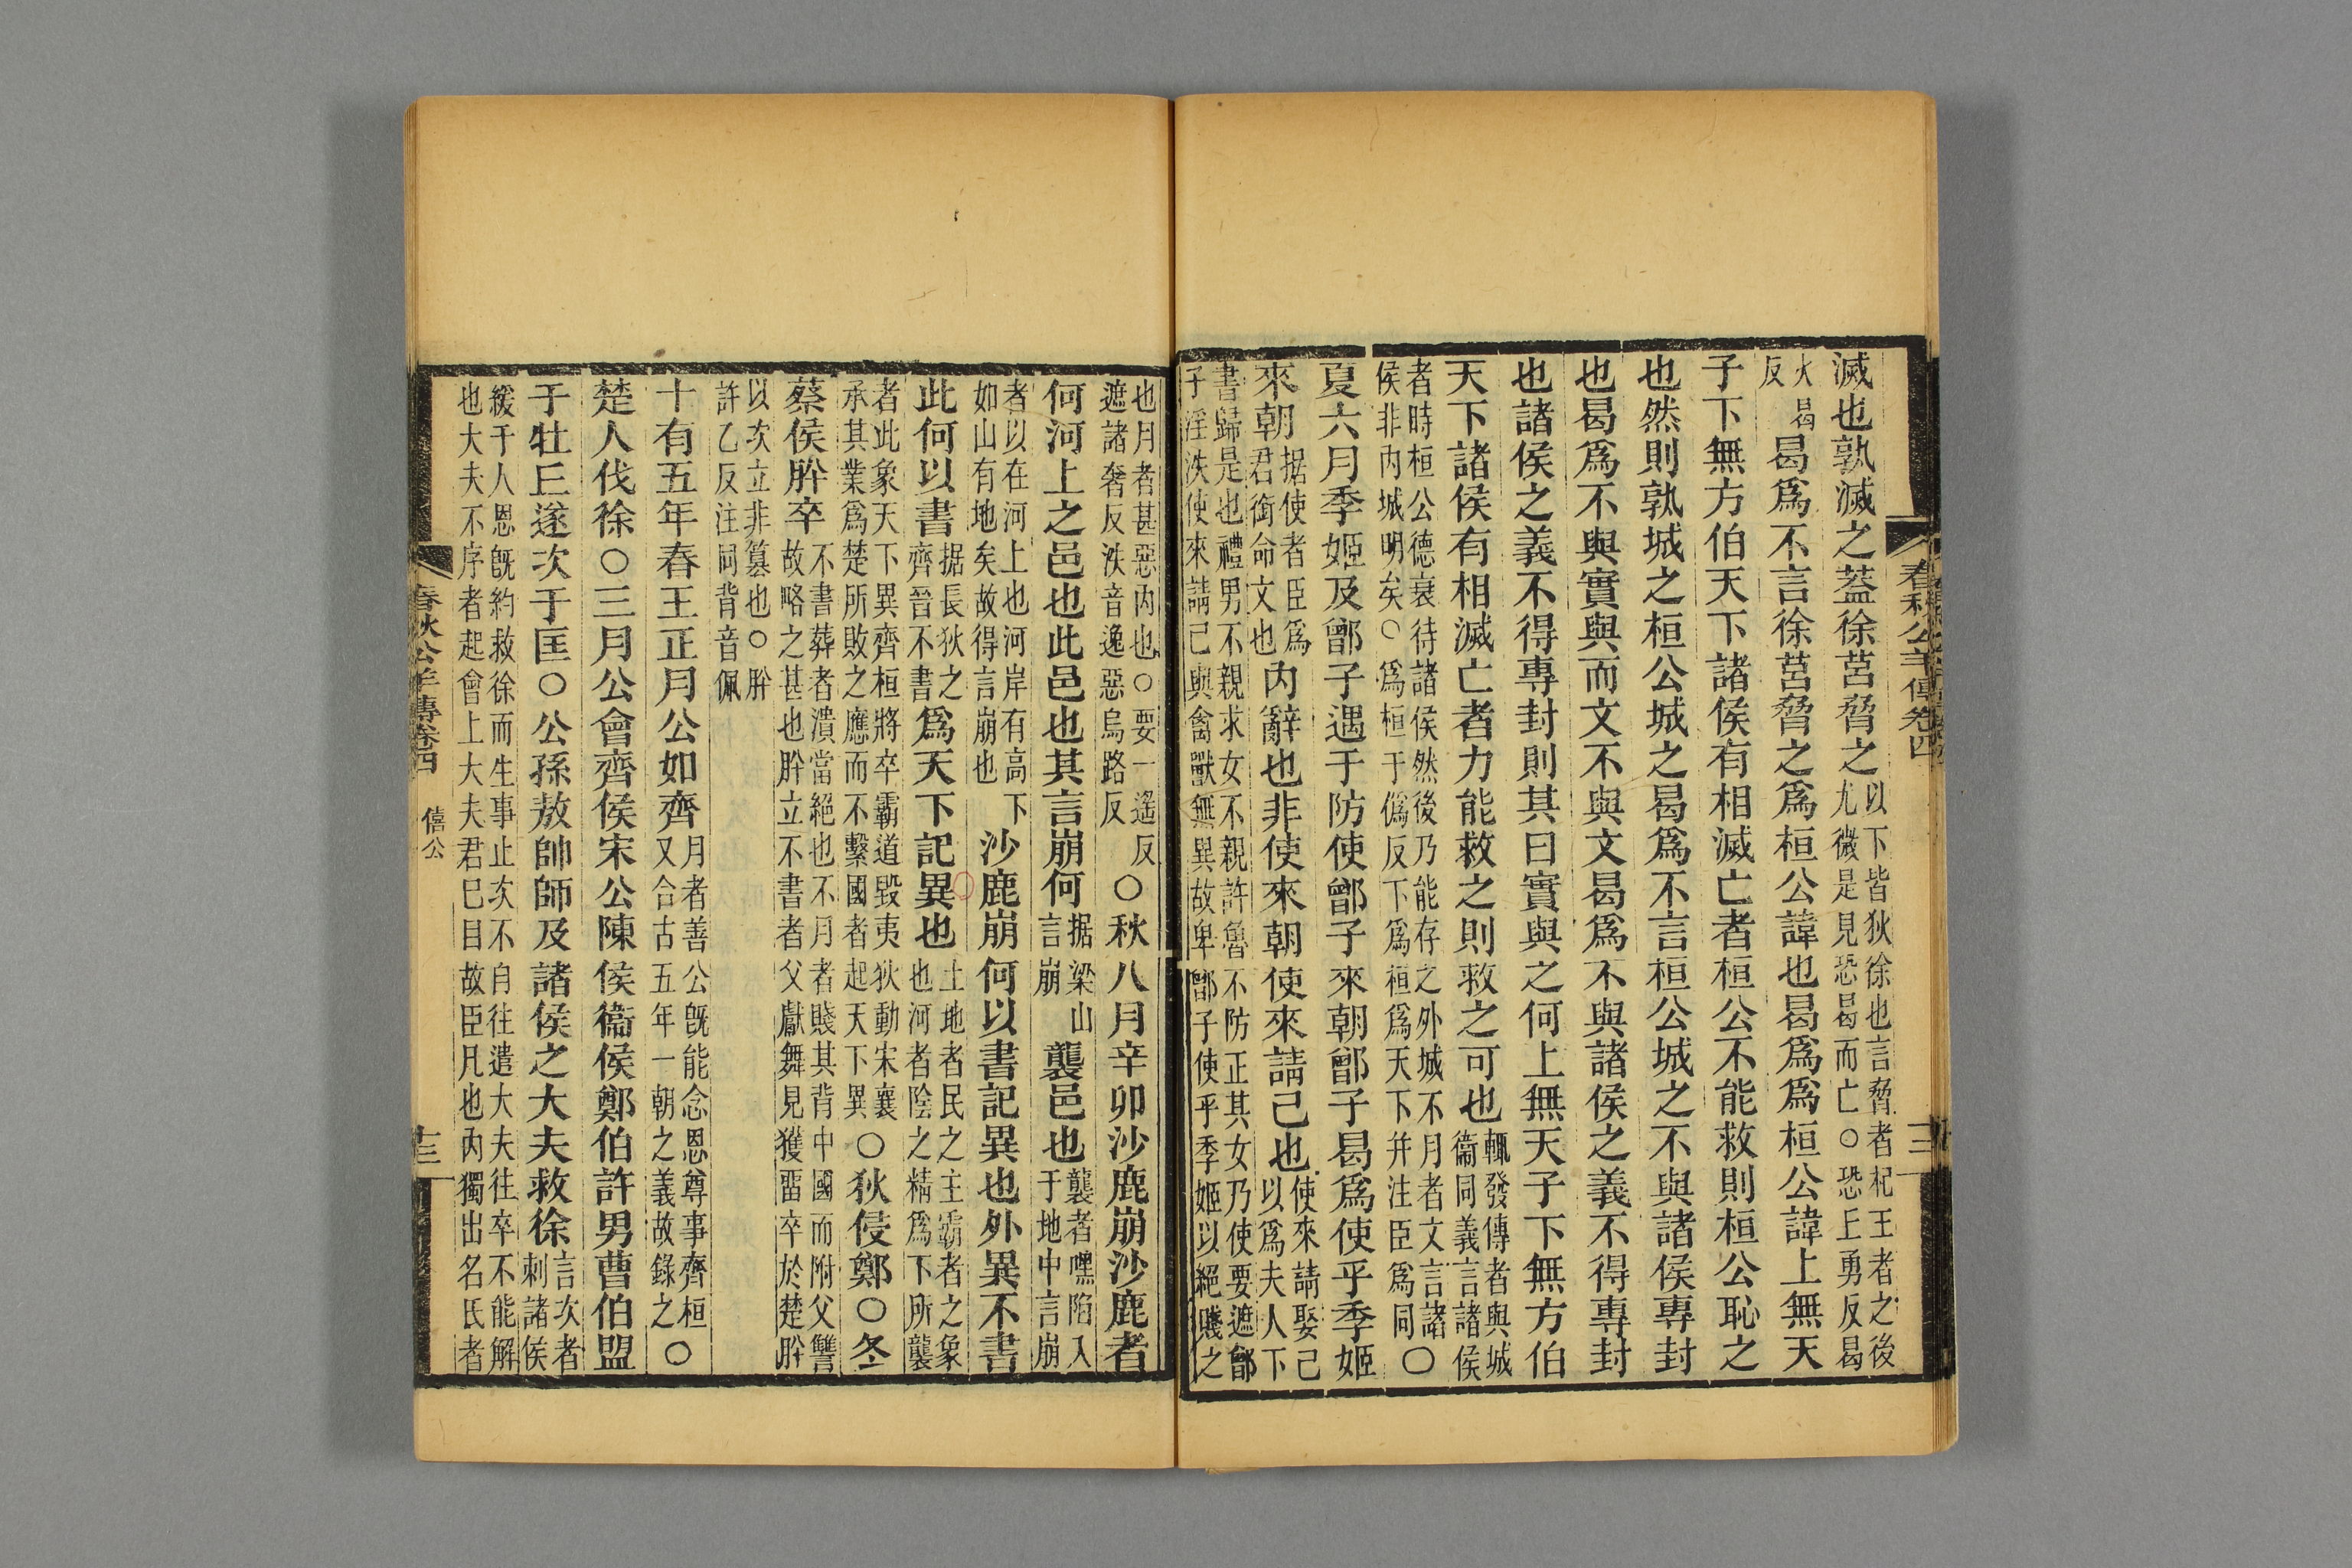 春秋公羊傳卷四
滅也孰滅之蓋徐莒脅之以下皆狄徐也言脅者杞王者之後尤微是見恐曷而亡○恐丘勇反曷
火曷反曷爲不言徐莒脅之爲桓公諱也曷爲爲桓公諱上無天
子下無方伯天下諸侯有相滅亡者桓公不能救則桓公恥之
也然則孰城之桓公城之曷爲不言桓公城之不與諸侯專封
也曷爲不與實與而文不與文曷爲不與諸侯之義不得專封
也諸侯之義不得專封則其曰實與之何上無天子下無方伯
天下諸侯有相滅亡者力能救之則救之可也輒發傳者與城衞同義言諸侯
者時桓公德衰待諸侯然後乃能存之外城不月者文言諸侯非內城明矣○爲桓于僞反下爲桓爲天下并注臣爲同○
夏六月季姬及鄫子遇于防使鄫子來朝鄫子曷爲使乎季姬
來朝据使者臣爲君銜命文也內辭也非使來朝使來請己也使來請娶己以爲夫人下
書歸是也禮男不親求女不親許魯不防正其女乃使要遮鄫子淫泆使來請己與禽獸無異故卑鄫子使乎季姬以絕賤之
也月者甚惡內也○要一遙反遮諸奢反泆音逸惡烏路反○秋八月辛卯沙鹿崩沙鹿者
何河上之邑也此邑也其言崩何据梁山言崩襲邑也襲者嘿陷入于地中言崩
者以在河上也河岸有高下如山有地矣故得言崩也沙鹿崩何以書記異也外異不書
此何以書据長狄之齊晉不書爲天下記異也土地者民之主霸者之象也河者陰之精爲下所襲
者此象天下異齊桓將卒霸道毀夷狄動宋襄承其業爲楚所敗之應而不繫國者起天下異○狄侵鄭○冬
蔡侯肸卒不書葬者潰當絕也不月者賤其背中國而附父讐故略之甚也肸立不書者父獻舞見獲畱卒於楚肸
以次立非篡也○肸許乙反注同背音佩
十有五年春王正月公如齊月者善公旣能念恩尊事齊桓又合古五年一朝之義故錄之○
楚人伐徐○三月公會齊侯宋公陳侯衞侯鄭伯許男曹伯盟
于牡丘遂次于匡○公孫敖帥師及諸侯之大夫救徐言次者刺諸侯
緩于人恩旣約救徐而生事止次不自往遣大夫往卒不能解也大夫不序者起會上大夫君已目故臣凡也內獨出名氏者
春秋公羊傳卷四 僖公 十三